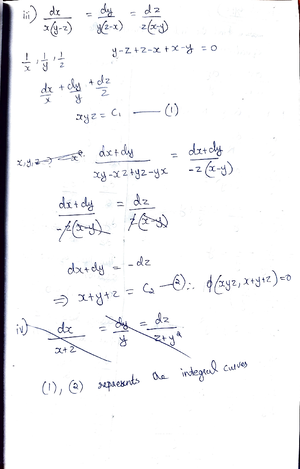 iii) dx/x(y-z) = dy/y(z-x) = dz/z(x-y)
1/x, 1/y, 1/z    y-z+z-x+x-y = 0
dx/x + dy/y + dz/z
xyz = C₁ —— (1)
x,y,z → (dx+dy)/(xy-xz+yz-yx) = (dx+dy)/(-z(x-y))
(dx+dy)/(-z(x-y)) = dz/(z(x-y))
dx+dy = -dz
⇒ x+y+z = C₂ —(2) ∴ ϕ(xyz, x+y+z)=0
iv) dx/(x+z) = dy/y = dz/(z+y²)
(1), (2) represents the integral curves